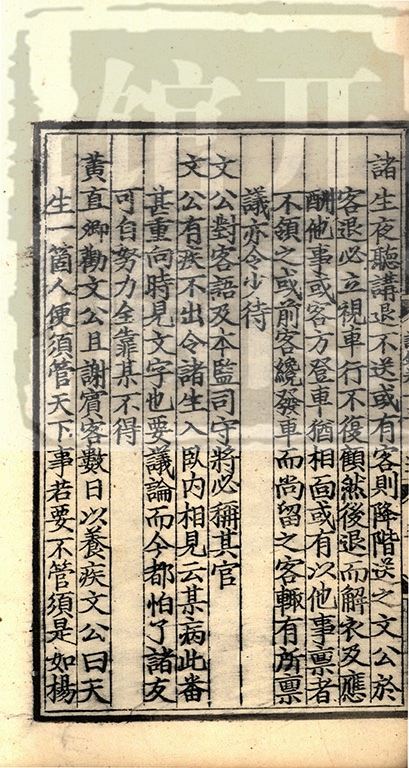 諸生夜聽講退不送或有客則降階送之文公於
客退必立視車行不復顧然後退而解衣及應
酬他事或客方登車猶相面或有以他事禀者
不領之或前客纔發車而尚留之客輙有所禀
議亦令少待
文公對客語及本監司守將必稱其官
文公有疾不出令諸生入臥内相見云某病此番
甚重向時見文字也要議論而今都怕了諸友
可自努力全靠某不得
黄直卿勸文公且謝賓客數日以養疾文公曰天
生一箇人便須管天下事若要不管須是如楊